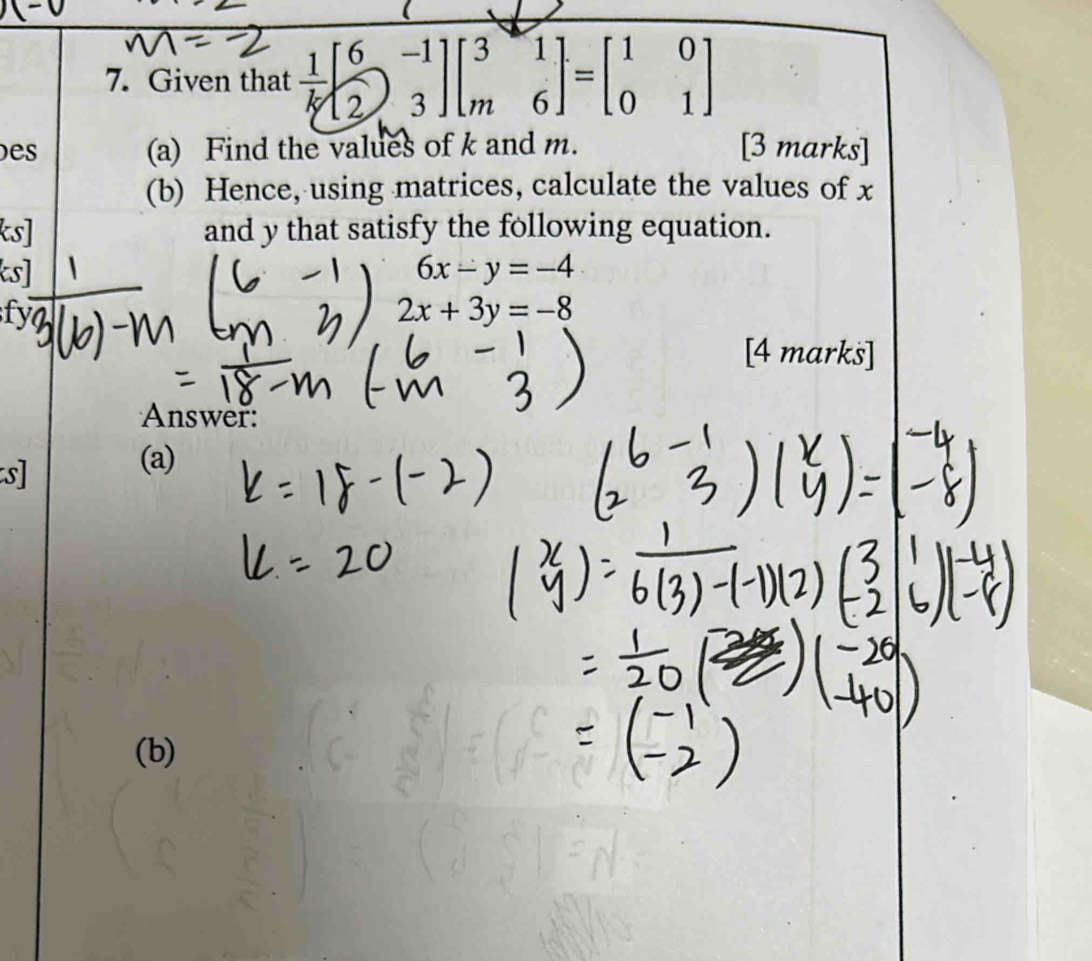 m = -2
7. Given that 1/k [6 -1; 2 3] [3 1; m 6] = [1 0; 0 1]
m
(a) Find the values of k and m. [3 marks]
(b) Hence, using matrices, calculate the values of x
and y that satisfy the following equation.
6x - y = -4
2x + 3y = -8
[4 marks]
1/(3(6) - m) (6 -1; -m 3)
= 1/(18 - m) (6 -1; -m 3)
Answer:
(a)
k = 18 - (-2)
k = 20
(6 -1; 2 3) (x; y) = (-4; -8)
(x; y) = 1/(6(3) - (-1)(2)) (3 1; -2 6) (-4; -8)
= 1/20 (-20; -40)
= (-1; -2)
(b)
ks]
ks]